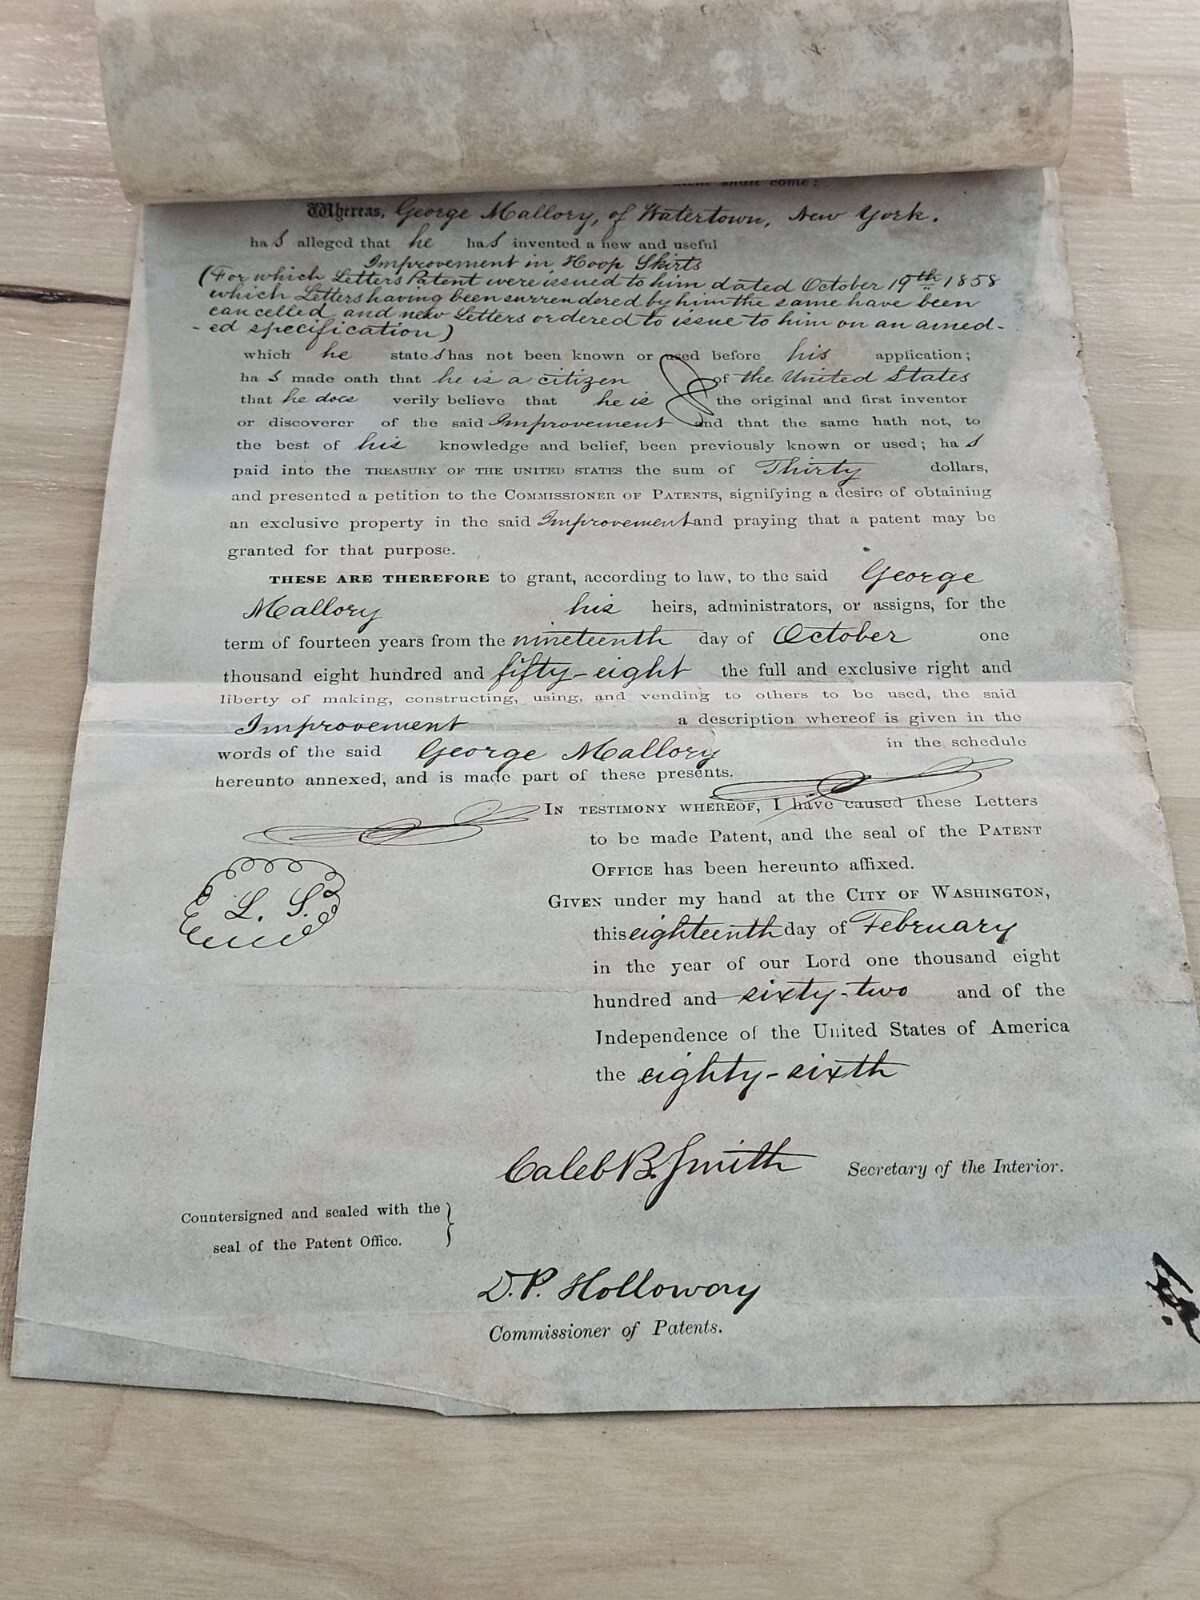 shall come:
Whereas, George Mallory, of Watertown, New York.
has alleged that he has invented a new and useful
Improvement in Hoop Skirts
(For which Letters Patent were issued to him dated October 19th 1858
which Letters having been surrendered by him the same have been
cancelled and new Letters ordered to issue to him on an amed-
-ed specification)
which he states has not been known or used before his application;
has made oath that he is a citizen of the United States
that he does verily believe that he is the original and first inventor
or discoverer of the said Improvement and that the same hath not, to
the best of his knowledge and belief, been previously known or used; has
paid into the TREASURY OF THE UNITED STATES the sum of Thirty dollars,
and presented a petition to the COMMISSIONER OF PATENTS, signifying a desire of obtaining
an exclusive property in the said Improvement and praying that a patent may be
granted for that purpose.
THESE ARE THEREFORE to grant, according to law, to the said George
Mallory his heirs, administrators, or assigns, for the
term of fourteen years from the nineteenth day of October one
thousand eight hundred and fifty-eight the full and exclusive right and
liberty of making, constructing, using, and vending to others to be used, the said
Improvement a description whereof is given in the
words of the said George Mallory in the schedule
hereunto annexed, and is made part of these presents.
IN TESTIMONY WHEREOF, I have caused these Letters
to be made Patent, and the seal of the PATENT
OFFICE has been hereunto affixed.
L. S.
GIVEN under my hand at the CITY OF WASHINGTON,
this eighteenth day of February
in the year of our Lord one thousand eight
hundred and sixty-two and of the
Independence of the United States of America
the eighty-sixth
Caleb B. Smith Secretary of the Interior.
Countersigned and sealed with the
seal of the Patent Office.
D. P. Holloway
Commissioner of Patents.